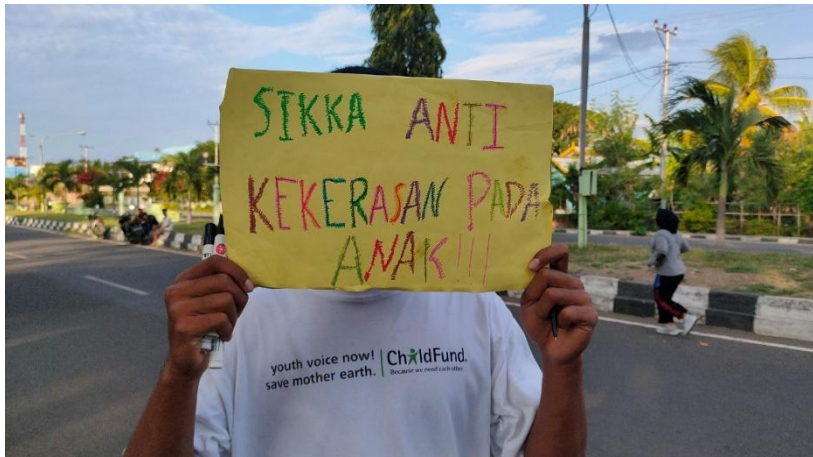 SIKKA ANTI
KEKERASAN PADA
ANAK!!!
youth voice now!
save mother earth.
ChildFund.
Because we need each other.